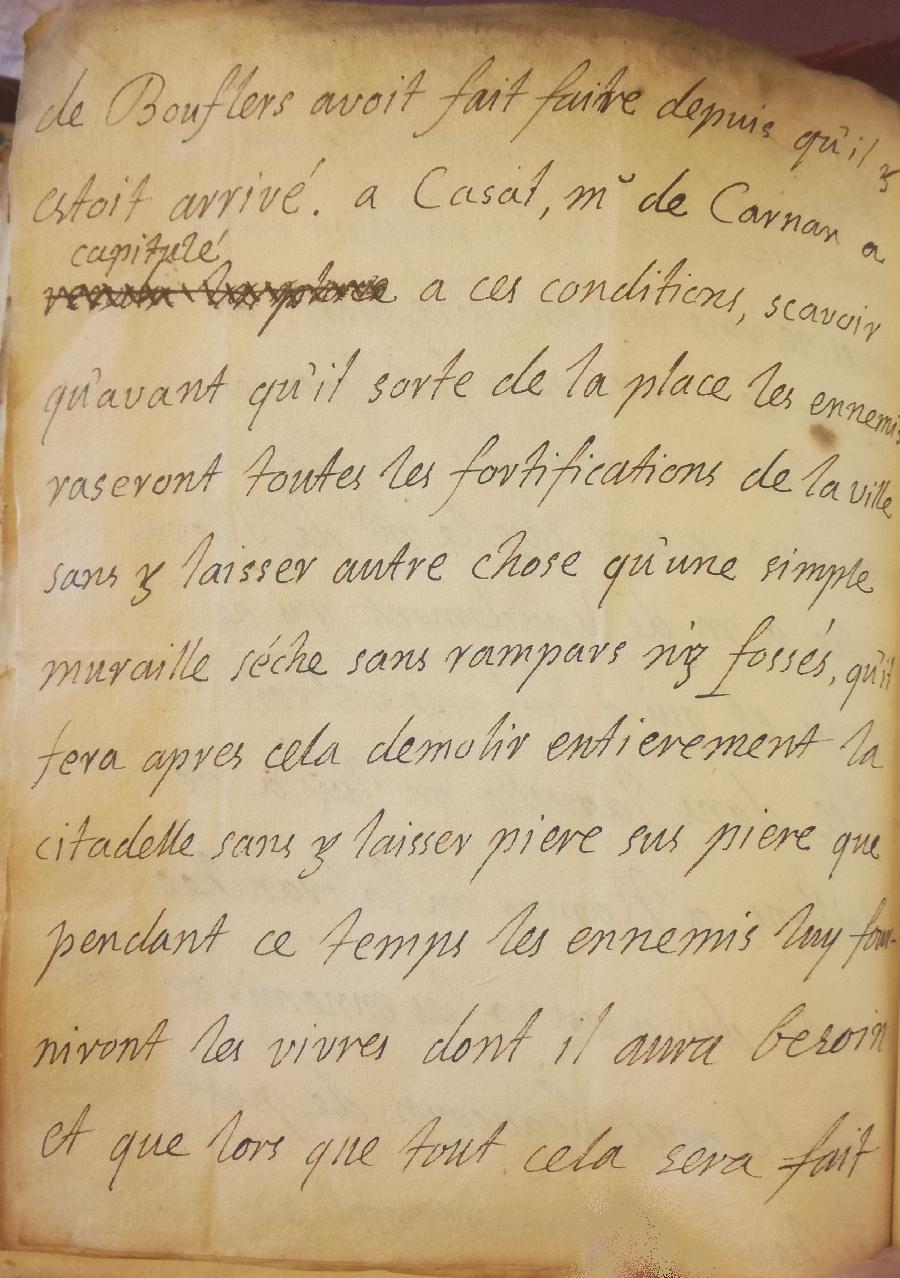 de Bouflers avoit fait faire depuis qu'il y
estoit arrivé. a Casal, mr de Carnan a
capitulé
rendu la place a ces conditions, scavoir
qu'avant qu'il sorte de la place les ennemis
raseront toutes les fortifications de la ville
sans y laisser autre chose qu'une simple
muraille séche sans rampars n'y fossés, qu'il
fera apres cela demolir entierement la
citadelle sans y laisser piere sus piere que
pendant ce temps les ennemis luy four-
niront les vivres dont il aura besoin
et que lors que tout cela sera fait